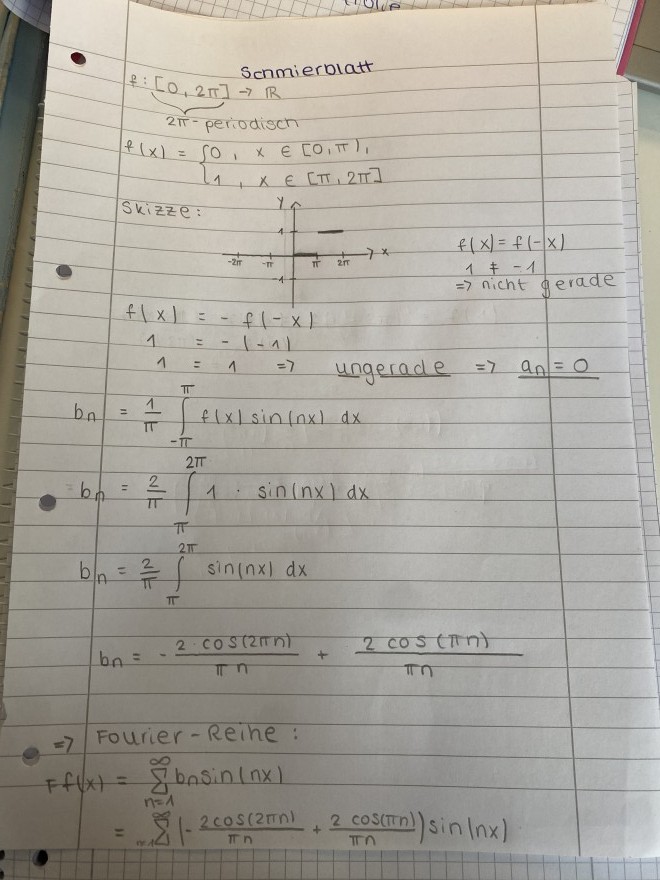 Schmierblatt
f : [0, 2π] → ℝ
2π - periodisch
f(x) = { 0 , x ∈ [0, π),
1 , x ∈ [π, 2π]
Skizze :
y
1
-2π -π π 2π x
-1
f(x) = f(-x)
1 ≠ -1
=> nicht gerade
f(x) = - f(-x)
1 = - (-1)
1 = 1 => ungerade => aₙ = 0
bₙ = 1/π ∫_{-π}^{π} f(x) sin(nx) dx
bₙ = 2/π ∫_{π}^{2π} 1 · sin(nx) dx
bₙ = 2/π ∫_{π}^{2π} sin(nx) dx
bₙ = - 2·cos(2πn)/πn + 2 cos(πn)/πn
=> Fourier-Reihe :
Ff(x) = ∑_{n=1}^{∞} bₙ sin(nx)
= ∑_{n=1}^{∞} (- 2cos(2πn)/πn + 2 cos(πn)/πn) sin(nx)